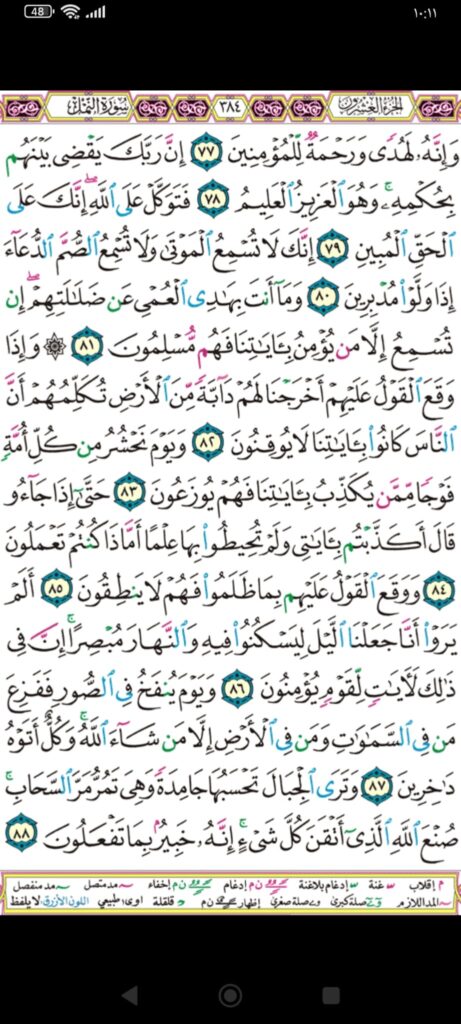 48 ١٠:١١
الجزء العشرون ٣٨٤ سورة النمل
وَإِنَّهُۥ لَهُدٗى وَرَحۡمَةٞ لِّلۡمُؤۡمِنِينَ ٧٧ إِنَّ رَبَّكَ يَقۡضِي بَيۡنَهُم
بِحُكۡمِهِۦۚ وَهُوَ ٱلۡعَزِيزُ ٱلۡعَلِيمُ ٧٨ فَتَوَكَّلۡ عَلَى ٱللَّهِۖ إِنَّكَ عَلَى
ٱلۡحَقِّ ٱلۡمُبِينِ ٧٩ إِنَّكَ لَا تُسۡمِعُ ٱلۡمَوۡتَىٰ وَلَا تُسۡمِعُ ٱلصُّمَّ ٱلدُّعَآءَ
إِذَا وَلَّوۡاْ مُدۡبِرِينَ ٨٠ وَمَآ أَنتَ بِهَٰدِي ٱلۡعُمۡيِ عَن ضَلَٰلَتِهِمۡۖ إِن
تُسۡمِعُ إِلَّا مَن يُؤۡمِنُ بِـَٔايَٰتِنَا فَهُم مُّسۡلِمُونَ ٨١ ۞ وَإِذَا
وَقَعَ ٱلۡقَوۡلُ عَلَيۡهِمۡ أَخۡرَجۡنَا لَهُمۡ دَآبَّةٗ مِّنَ ٱلۡأَرۡضِ تُكَلِّمُهُمۡ أَنَّ
ٱلنَّاسَ كَانُواْ بِـَٔايَٰتِنَا لَا يُوقِنُونَ ٨٢ وَيَوۡمَ نَحۡشُرُ مِن كُلِّ أُمَّةٖ
فَوۡجٗا مِّمَّن يُكَذِّبُ بِـَٔايَٰتِنَا فَهُمۡ يُوزَعُونَ ٨٣ حَتَّىٰٓ إِذَا جَآءُو
قَالَ أَكَذَّبۡتُم بِـَٔايَٰتِي وَلَمۡ تُحِيطُواْ بِهَا عِلۡمًا أَمَّاذَا كُنتُمۡ تَعۡمَلُونَ
٨٤ وَوَقَعَ ٱلۡقَوۡلُ عَلَيۡهِم بِمَا ظَلَمُواْ فَهُمۡ لَا يَنطِقُونَ ٨٥ أَلَمۡ
يَرَوۡاْ أَنَّا جَعَلۡنَا ٱلَّيۡلَ لِيَسۡكُنُواْ فِيهِ وَٱلنَّهَارَ مُبۡصِرًاۚ إِنَّ فِي
ذَٰلِكَ لَأٓيَٰتٖ لِّقَوۡمٖ يُؤۡمِنُونَ ٨٦ وَيَوۡمَ يُنفَخُ فِي ٱلصُّورِ فَفَزِعَ
مَن فِي ٱلسَّمَٰوَٰتِ وَمَن فِي ٱلۡأَرۡضِ إِلَّا مَن شَآءَ ٱللَّهُۚ وَكُلٌّ أَتَوۡهُ
دَٰخِرِينَ ٨٧ وَتَرَى ٱلۡجِبَالَ تَحۡسَبُهَا جَامِدَةٗ وَهِيَ تَمُرُّ مَرَّ ٱلسَّحَابِۚ
صُنۡعَ ٱللَّهِ ٱلَّذِيٓ أَتۡقَنَ كُلَّ شَيۡءٍۚ إِنَّهُۥ خَبِيرُۢ بِمَا تَفۡعَلُونَ ٨٨
م إقلاب غنة إدغام بلاغنة ن م إدغام ن م إخفاء مد متصل مد منفصل
المد اللازم صلة كبرى صلة صغرى إظهار ن م قلقلة اوي: طبيعي اللون الأزرق: لا يلفظ